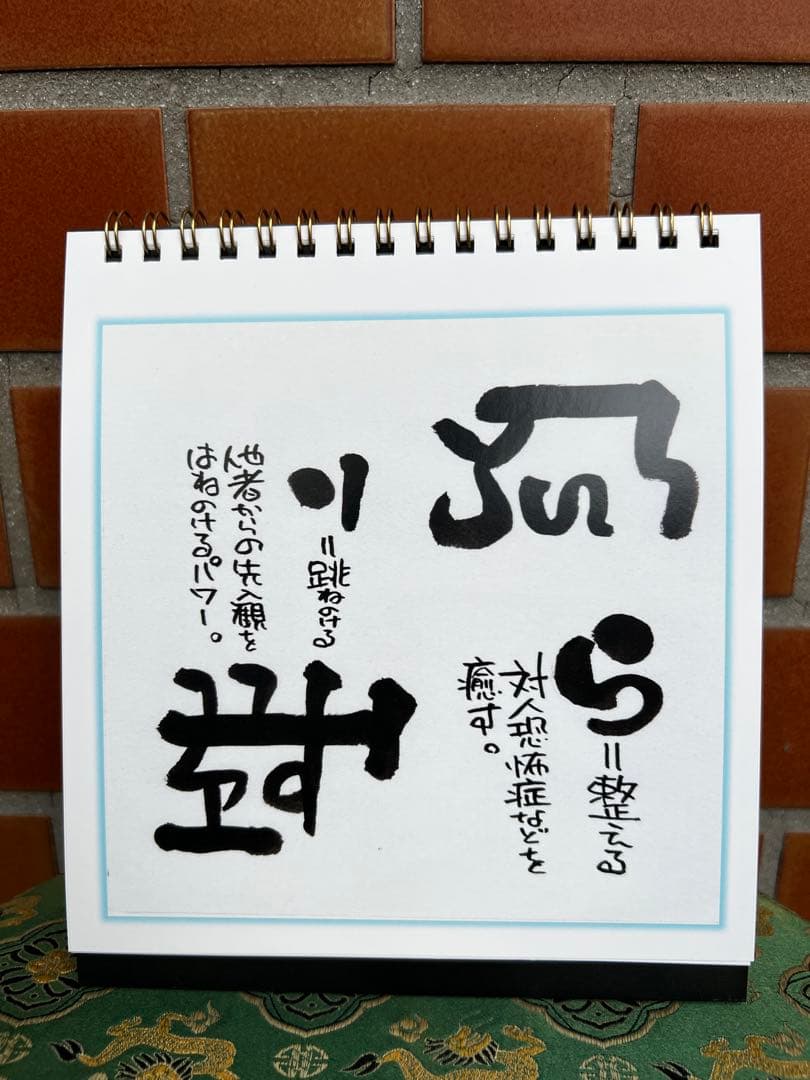 ら＝整える
対人恐怖症などを
癒す。
リ＝跳ねのける
他者からの先入観を
はねのけるパワー。